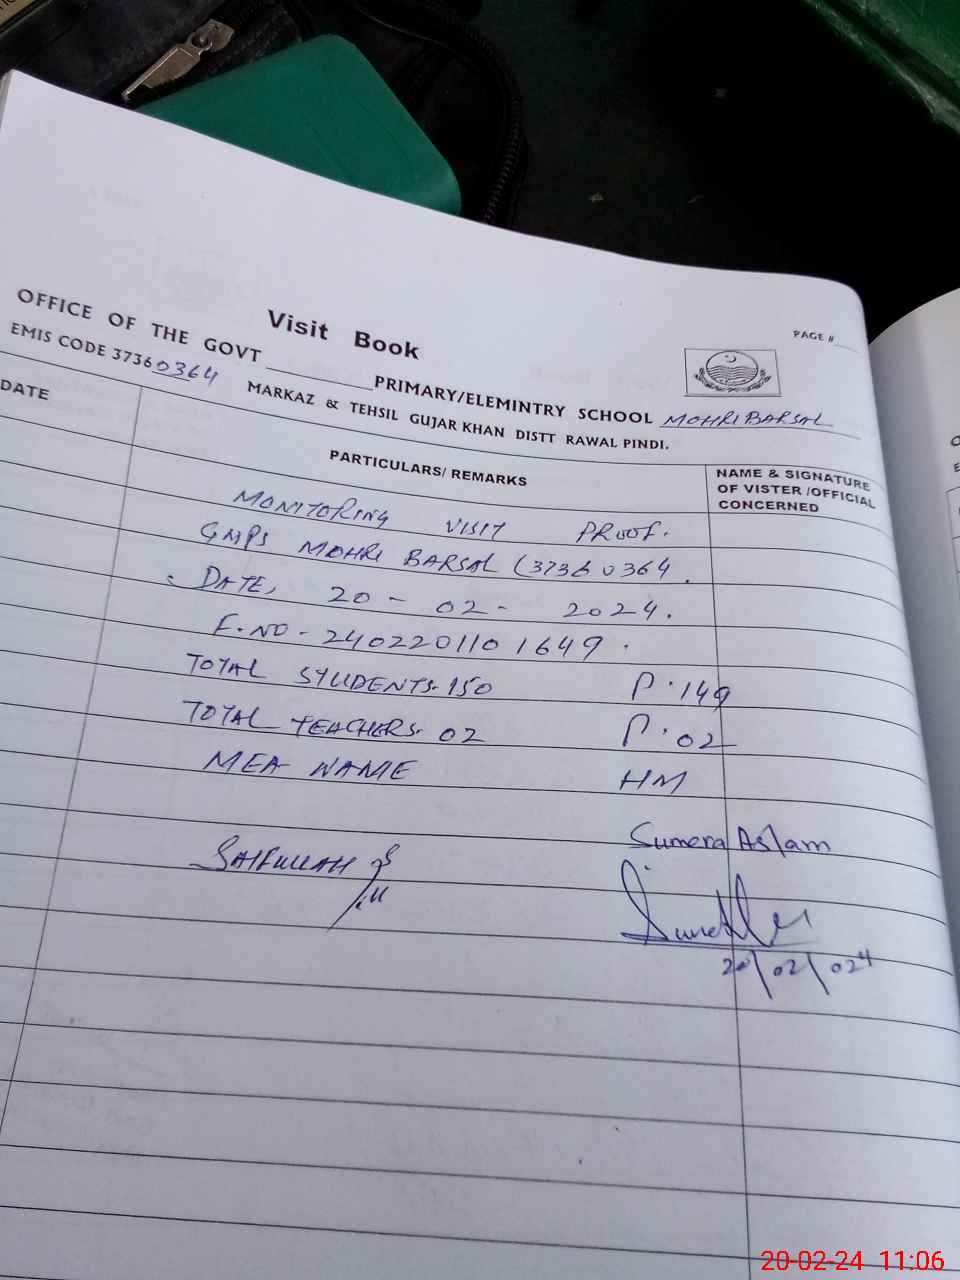 Visit Book
PAGE #
OFFICE OF THE GOVT ________ PRIMARY/ELEMINTRY SCHOOL MOHRI BARSAL
EMIS CODE 37360364 MARKAZ & TEHSIL GUJAR KHAN DISTT RAWAL PINDI.
DATE
PARTICULARS/ REMARKS
NAME & SIGNATURE
OF VISTER /OFFICIAL
CONCERNED
MONITORING VISIT PROOF.
GMPS MOHRI BARSAL (37360364.
DATE, 20-02-2024.
F.NO-2402201101649.
TOTAL STUDENTS.150 P.149
TOTAL TEACHERS.02 P.02
MEA NAME HM
Sumera Aslam
SAIFULLAH
20/02/024
20-02-24 11:06